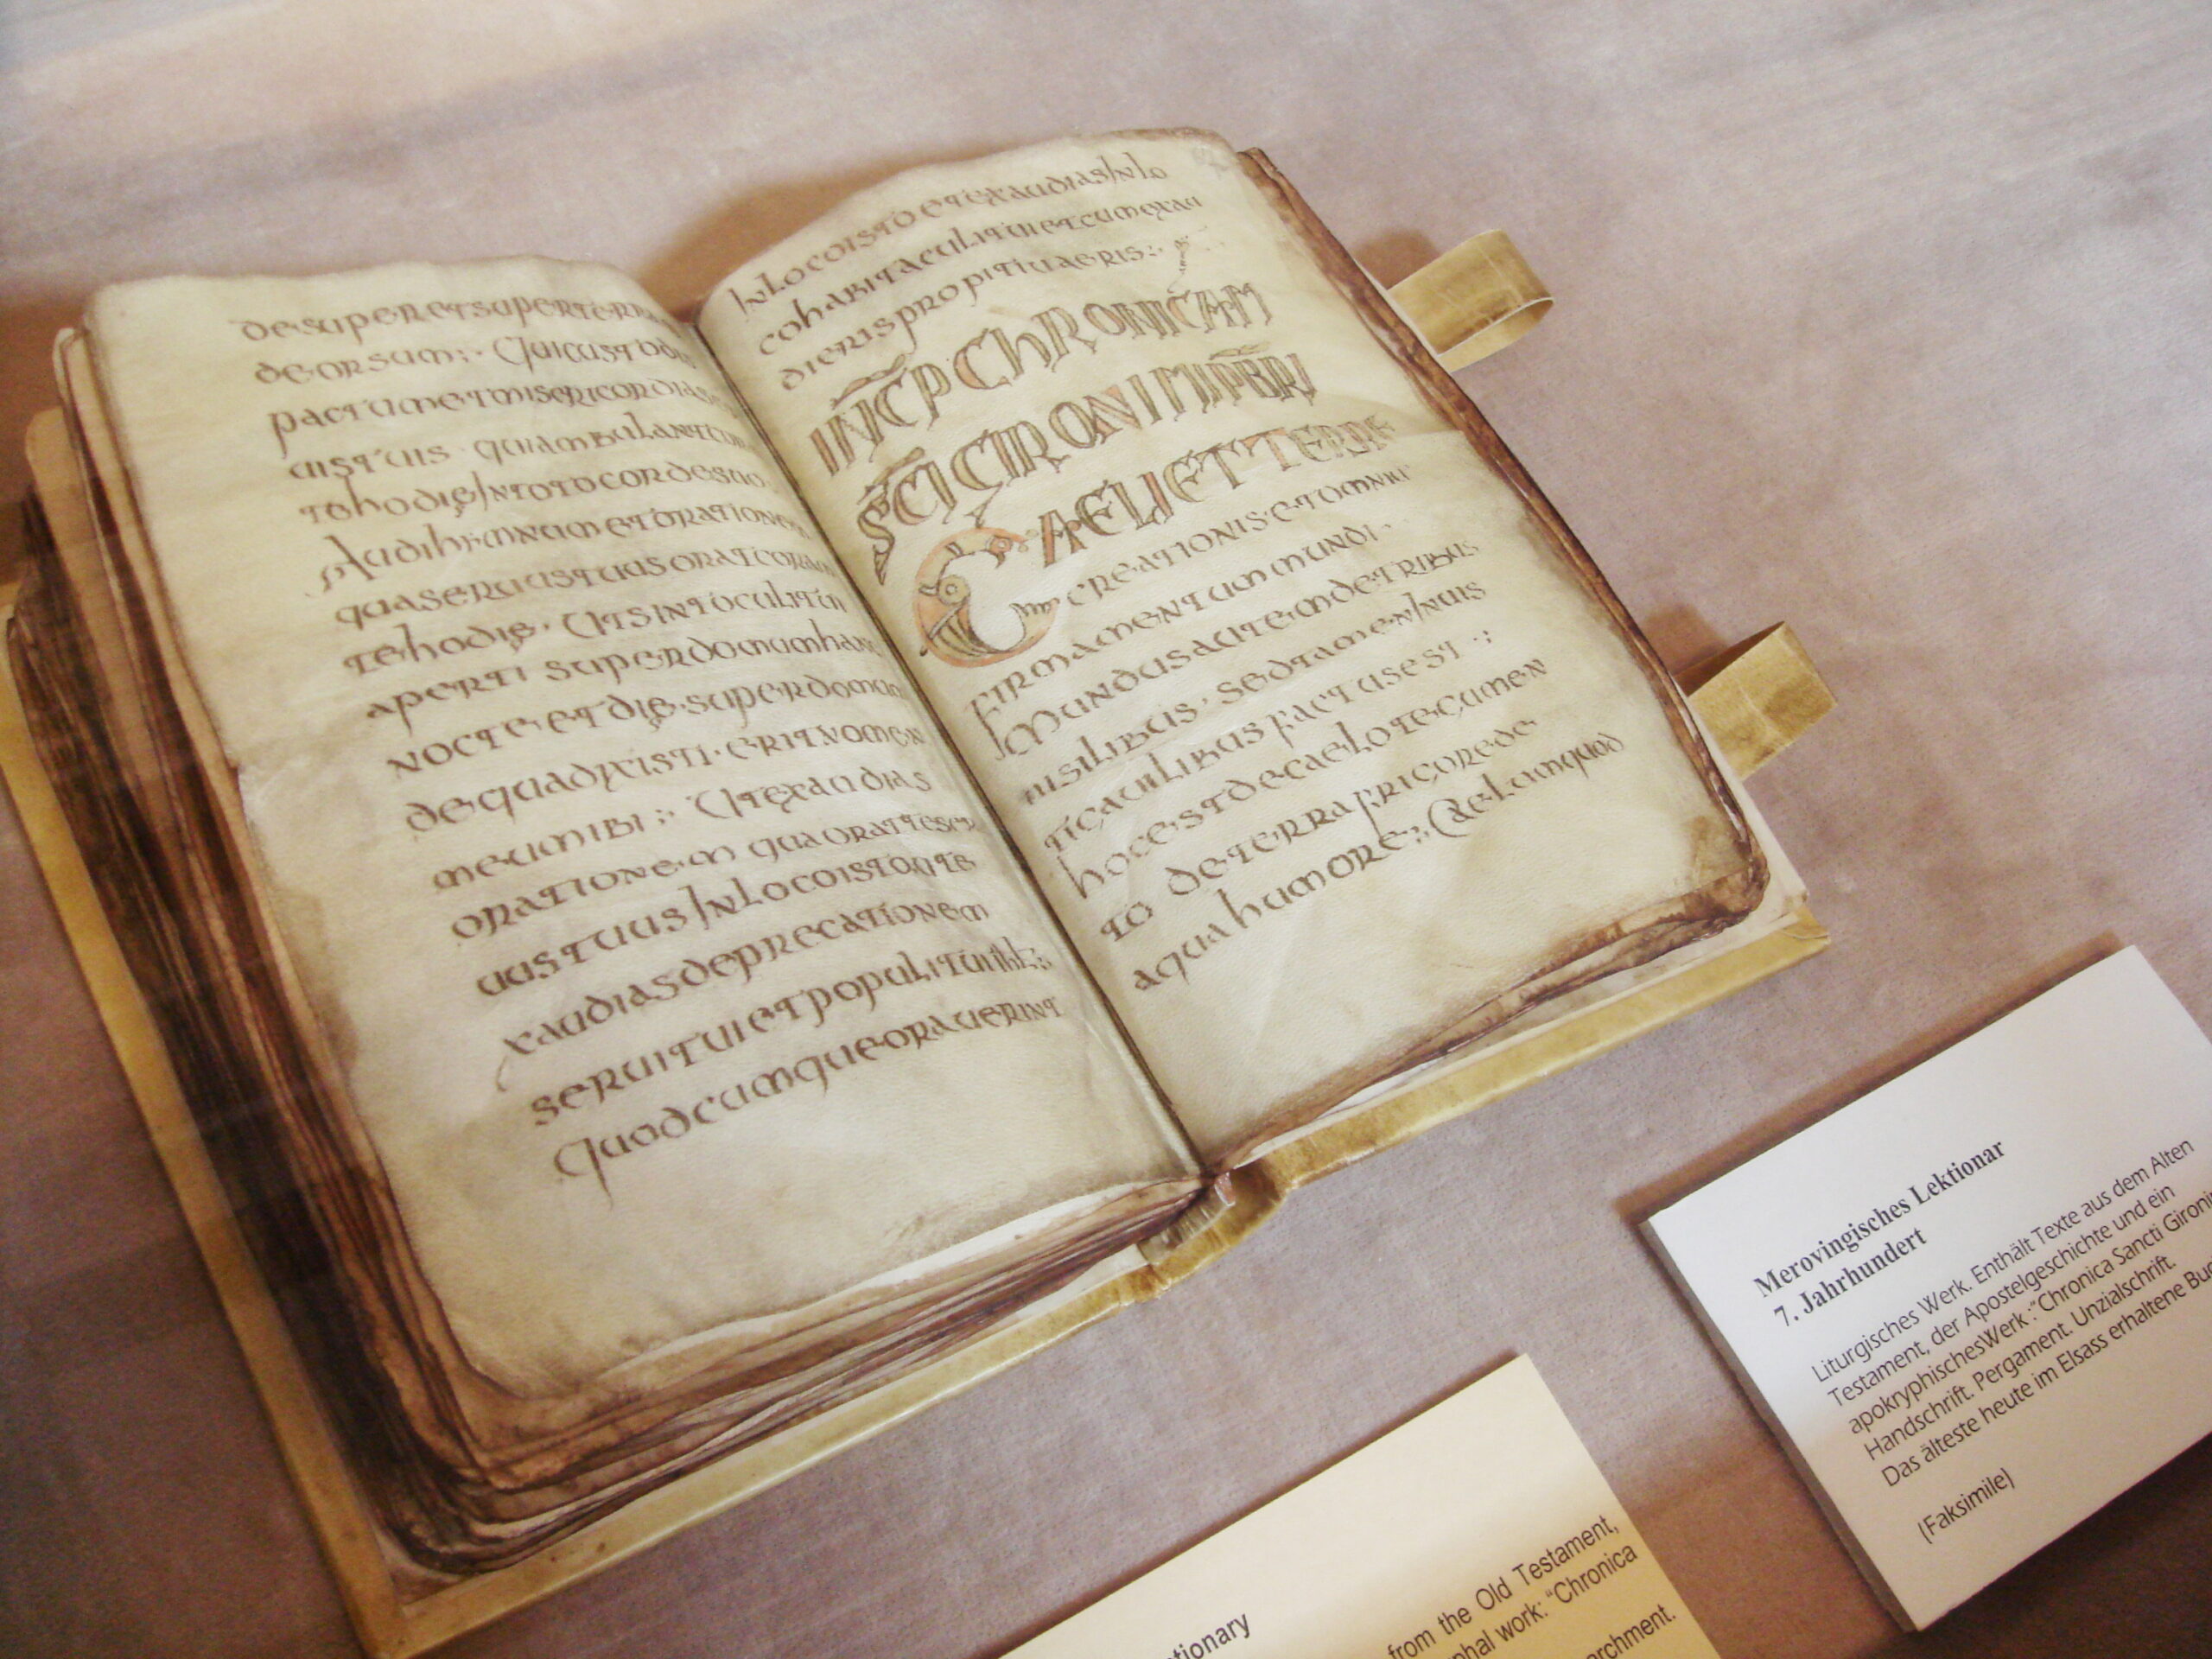 desuper et super terra
deorsum:· Qui custodis
pactum et misericordias
uis tuis · qui ambulant cor
te hodie In toto corde suo
Audi hymnum et orationem
qua seruus tuus orat coram
te hodie · Ut sint oculi tui
aperti super domum hanc
nocte et die · super domum
de qua dixisti · erit nomen
meum ibi :· Ut exaudias
orationem qua orat te ser
uus tuus In loco isto et te
xaudias deprecationem
serui tui et populi tui
Quodcumque orauerint
In loco isto et exaudias In lo
co habitaculi tui et cum exau
dieris propitiu aeris :·
INCP CHRONICAM
SCI CIRONIMI PBRI
CAELI ET TERRE
creationis et omniu
firmamentum mundi ·
Mundus autem de tribus
uisilibus · sed tamen In uis
ticauilibus factus est ·:
hoc est de caelo tecumen
to de terra fricore de
aqua humore :· Caelum quod
Merovingisches Lektionar
7. Jahrhundert
Liturgisches Werk. Enthält Texte aus dem Alten
Testament, der Apostelgeschichte und ein
apokryphischesWerk :"Chronica Sancti Gironi
Handschrift. Pergament. Unzialschrift.
Das älteste heute im Elsass erhaltene Buc
(Faksimile)
tionary
from the Old Testament,
phal work: "Chronica
archment.